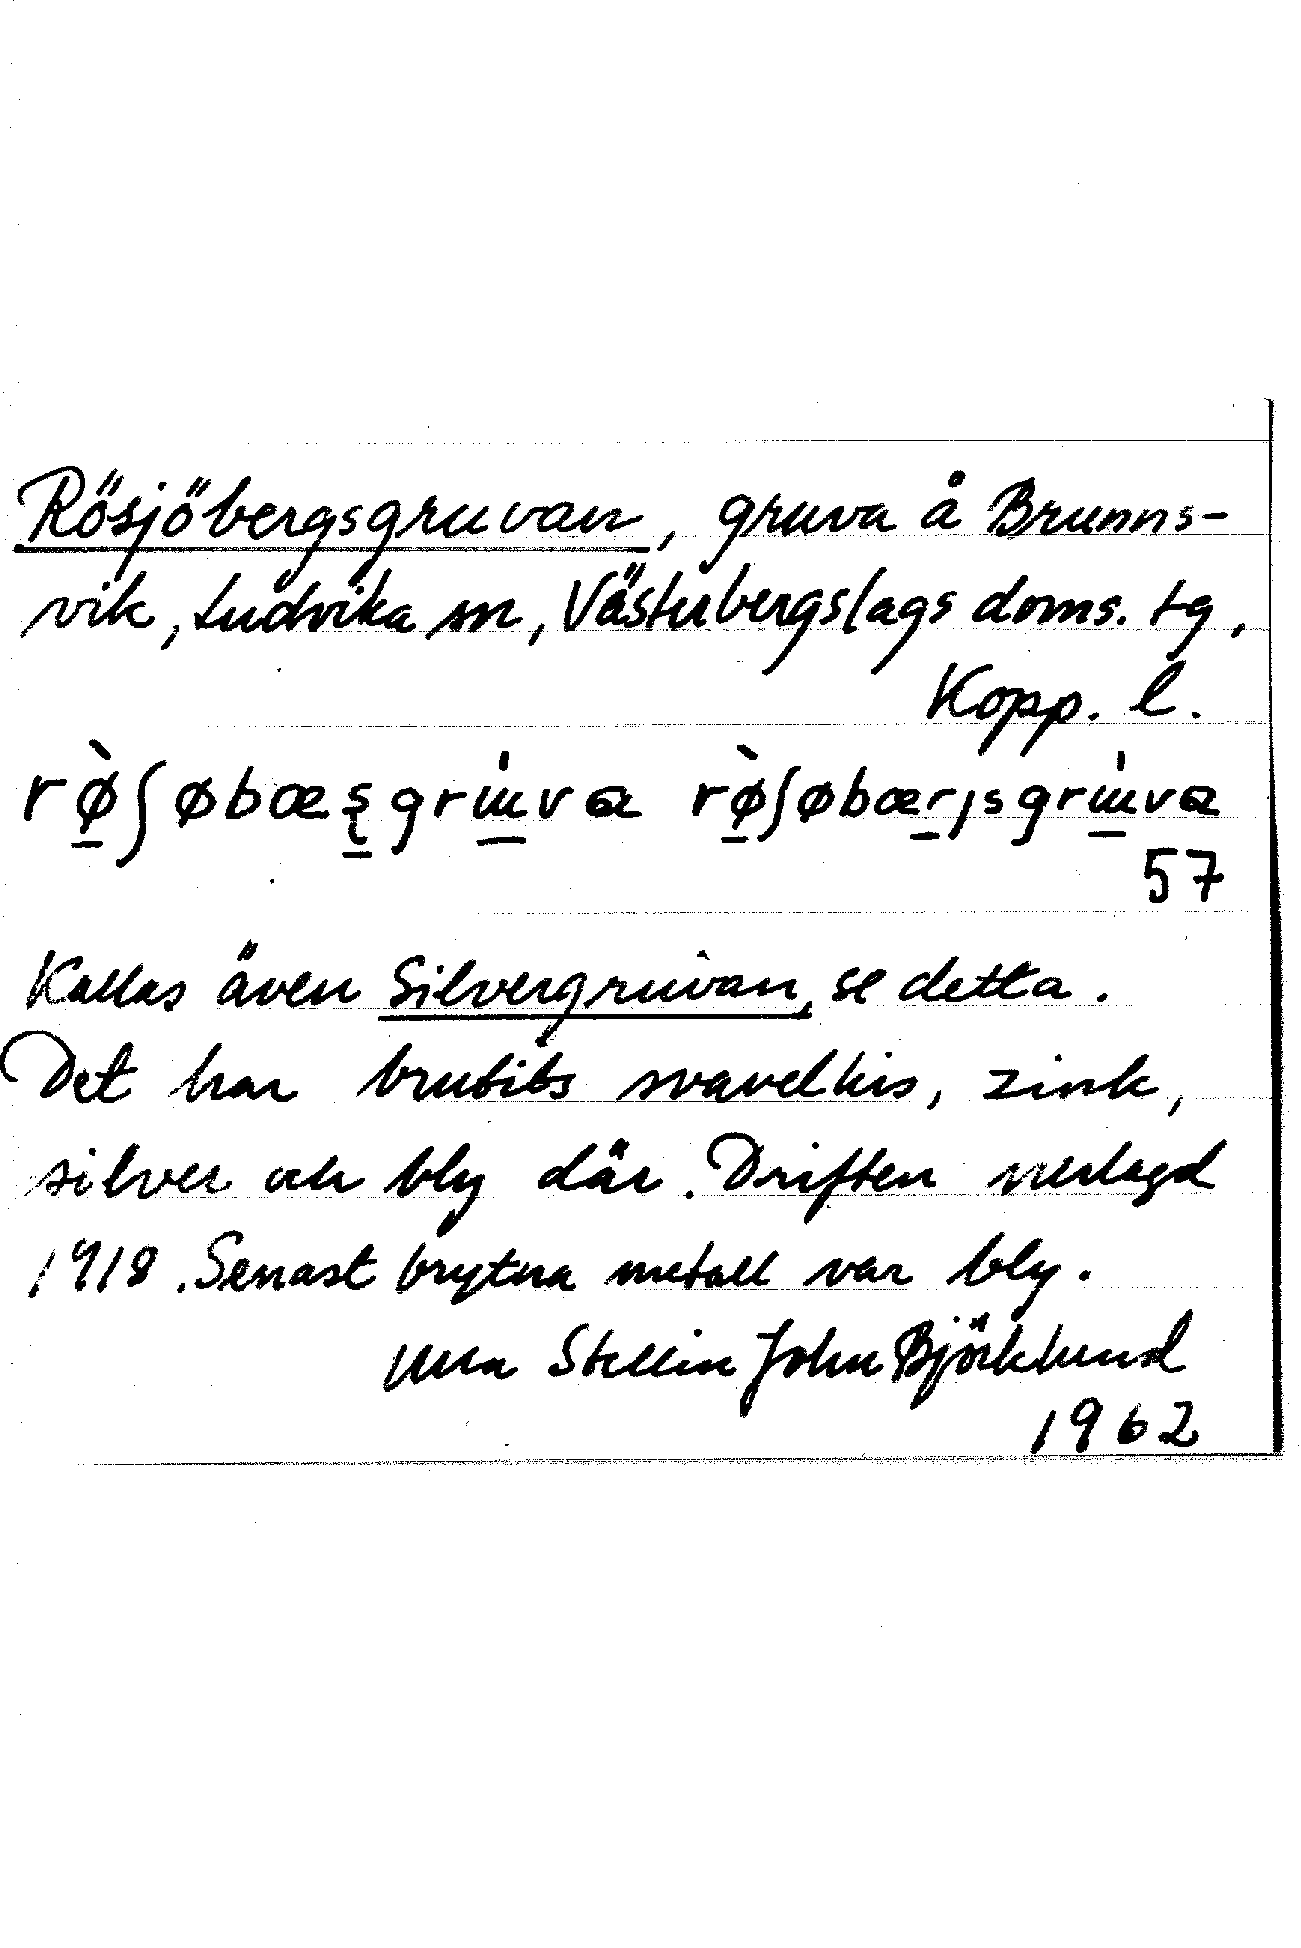 Rösjöbergsgruvan, gruva å Brunns-
vik, Ludvika sn, Västerbergslags doms. tg,
Kopp. l.
rø̠̀ʃøbœʂ̠grɯ̠́vɑ rø̠̀ʃøbær̠ɟsgrɯ̠́vɑ
57
Kallas även Silvergruvan, se detta.
Det har brutits svavelkis, zink,
silver och bly där. Driften nerlagd
1918. Senast brytna metall var bly.
Stellin John Björklund
1962